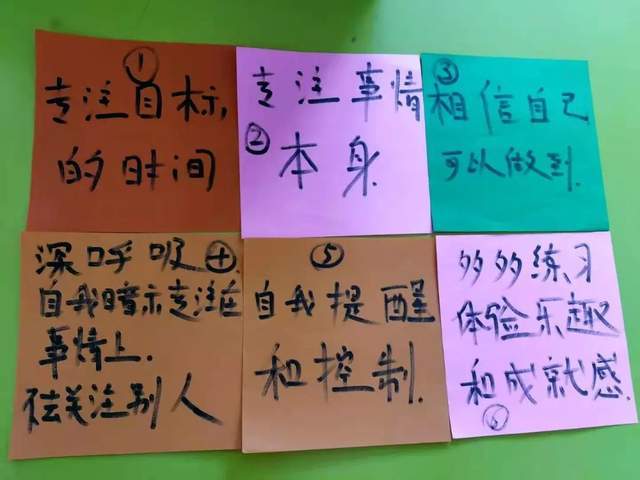 ①
专注目标,
的时间
专注事情
②本身.
③
相信自己
可以做到.
深呼吸④
自我暗示专注在
事情上.
不去关注别人
⑤
自我提醒
和控制.
多多练习
体验乐趣
和成就感.
⑥